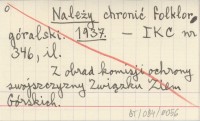 Należy chronić folklor
góralski. 1937. — IKC nr
346, il.
Z obrad komisji ochrony
swojszczyzny Związku Ziem
Górskich.